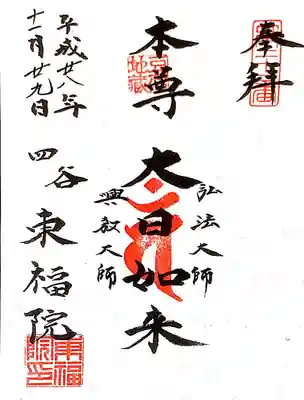 奉拝
本尊
弘法大師
大日如来
興教大師
平成廿八年
十一月廿九日
四谷
東福院
東福
院印